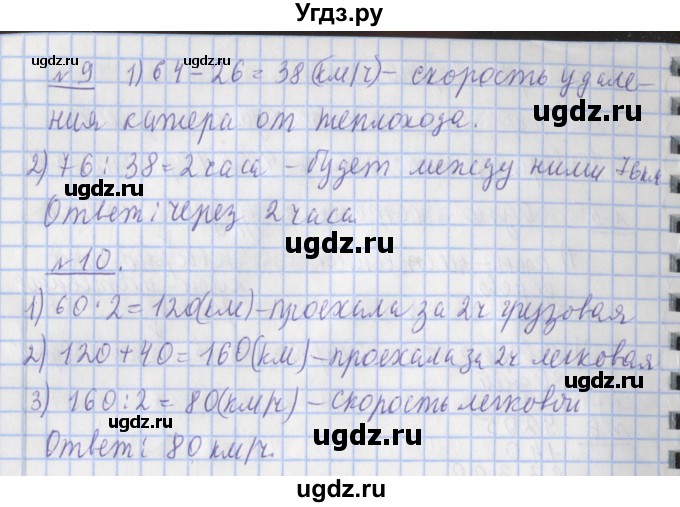 Угдз.ру
№9 1) 64-26=38(км/ч)- скорость удале-
ния катера от теплохода.
2) 76:38=2 часа - будет между ними 76км
Ответ: через 2 часа
№10.
1) 60·2=120(км)-проехала за 2ч грузовая
2) 120+40=160(км)-проехала за 2ч легковая
3) 160:2=80(км/ч)-скорость легковой
Ответ: 80 км/ч.
ugdz.ru
ugdz.ru
ugdz.ru
ugdz.ru
ugdz.ru
ugdz.ru
ugdz.ru
ugdz.ru
ugdz.ru
ugdz.ru
ugdz.ru
ugdz.ru
ugdz.ru
ugdz.ru